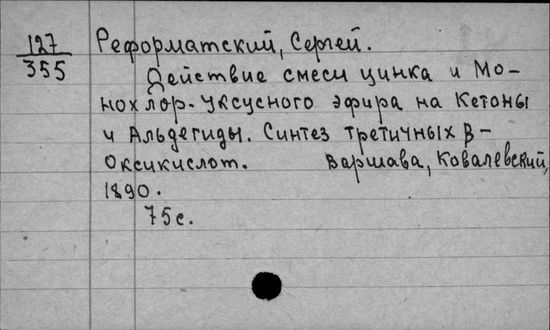 127
355
Реформатский, Сергей.
Действие смеси цинка и Мо-
нохлор-уксусного эфира на Кетоны
и Альдегиды. Синтез третичных β-
Оксикислот. Варшава, Ковалевский,
1890.
75 с.